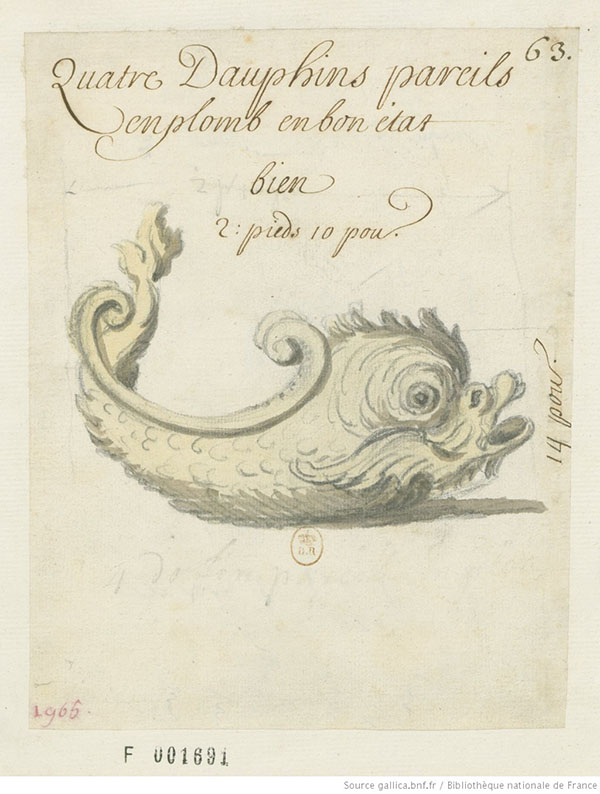 63.
Quatre Dauphins pareils
en plomb en bon état
bien
2: pieds 10 pou.
14 pou.
B.R
1965.
F 001691
Source gallica.bnf.fr / Bibliothèque nationale de France